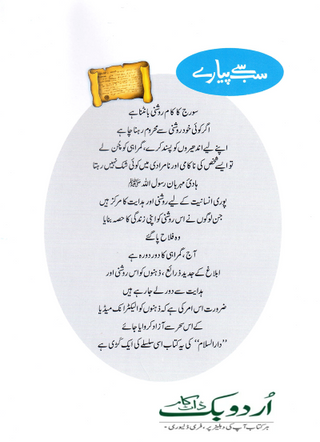 سب سے پیارے
سورج کا کام روشنی بانٹنا ہے
اگر کوئی خود روشنی سے محروم رہنا چاہے
اپنے لیے اندھیروں کو پسند کرے، گمراہی کو چن لے
تو ایسے شخص کی ناکامی اور نامرادی میں کوئی شک نہیں رہتا
ہادیٔ مہربان رسول اللہ ﷺ
پوری انسانیت کے لیے روشنی اور ہدایت کا مرکز ہیں
جن لوگوں نے اس روشنی کو اپنی زندگی کا حصہ بنایا
وہ فلاح پا گئے
آج، گمراہی کا دور دورہ ہے
ابلاغ کے جدید ذرائع، ذہنوں کو اس روشنی اور
ہدایت سے دور لے جا رہے ہیں
ضرورت اس امر کی ہے کہ ذہنوں کو الیکٹرانک میڈیا
کے اس سحر سے آزاد کروایا جائے
”دارالسلام“ کی یہ کتاب اسی سلسلے کی ایک کڑی ہے
اُردو بک ڈاٹ کام
ہر کتاب آپ کی دہلیز پر، فری ڈلیوری۔